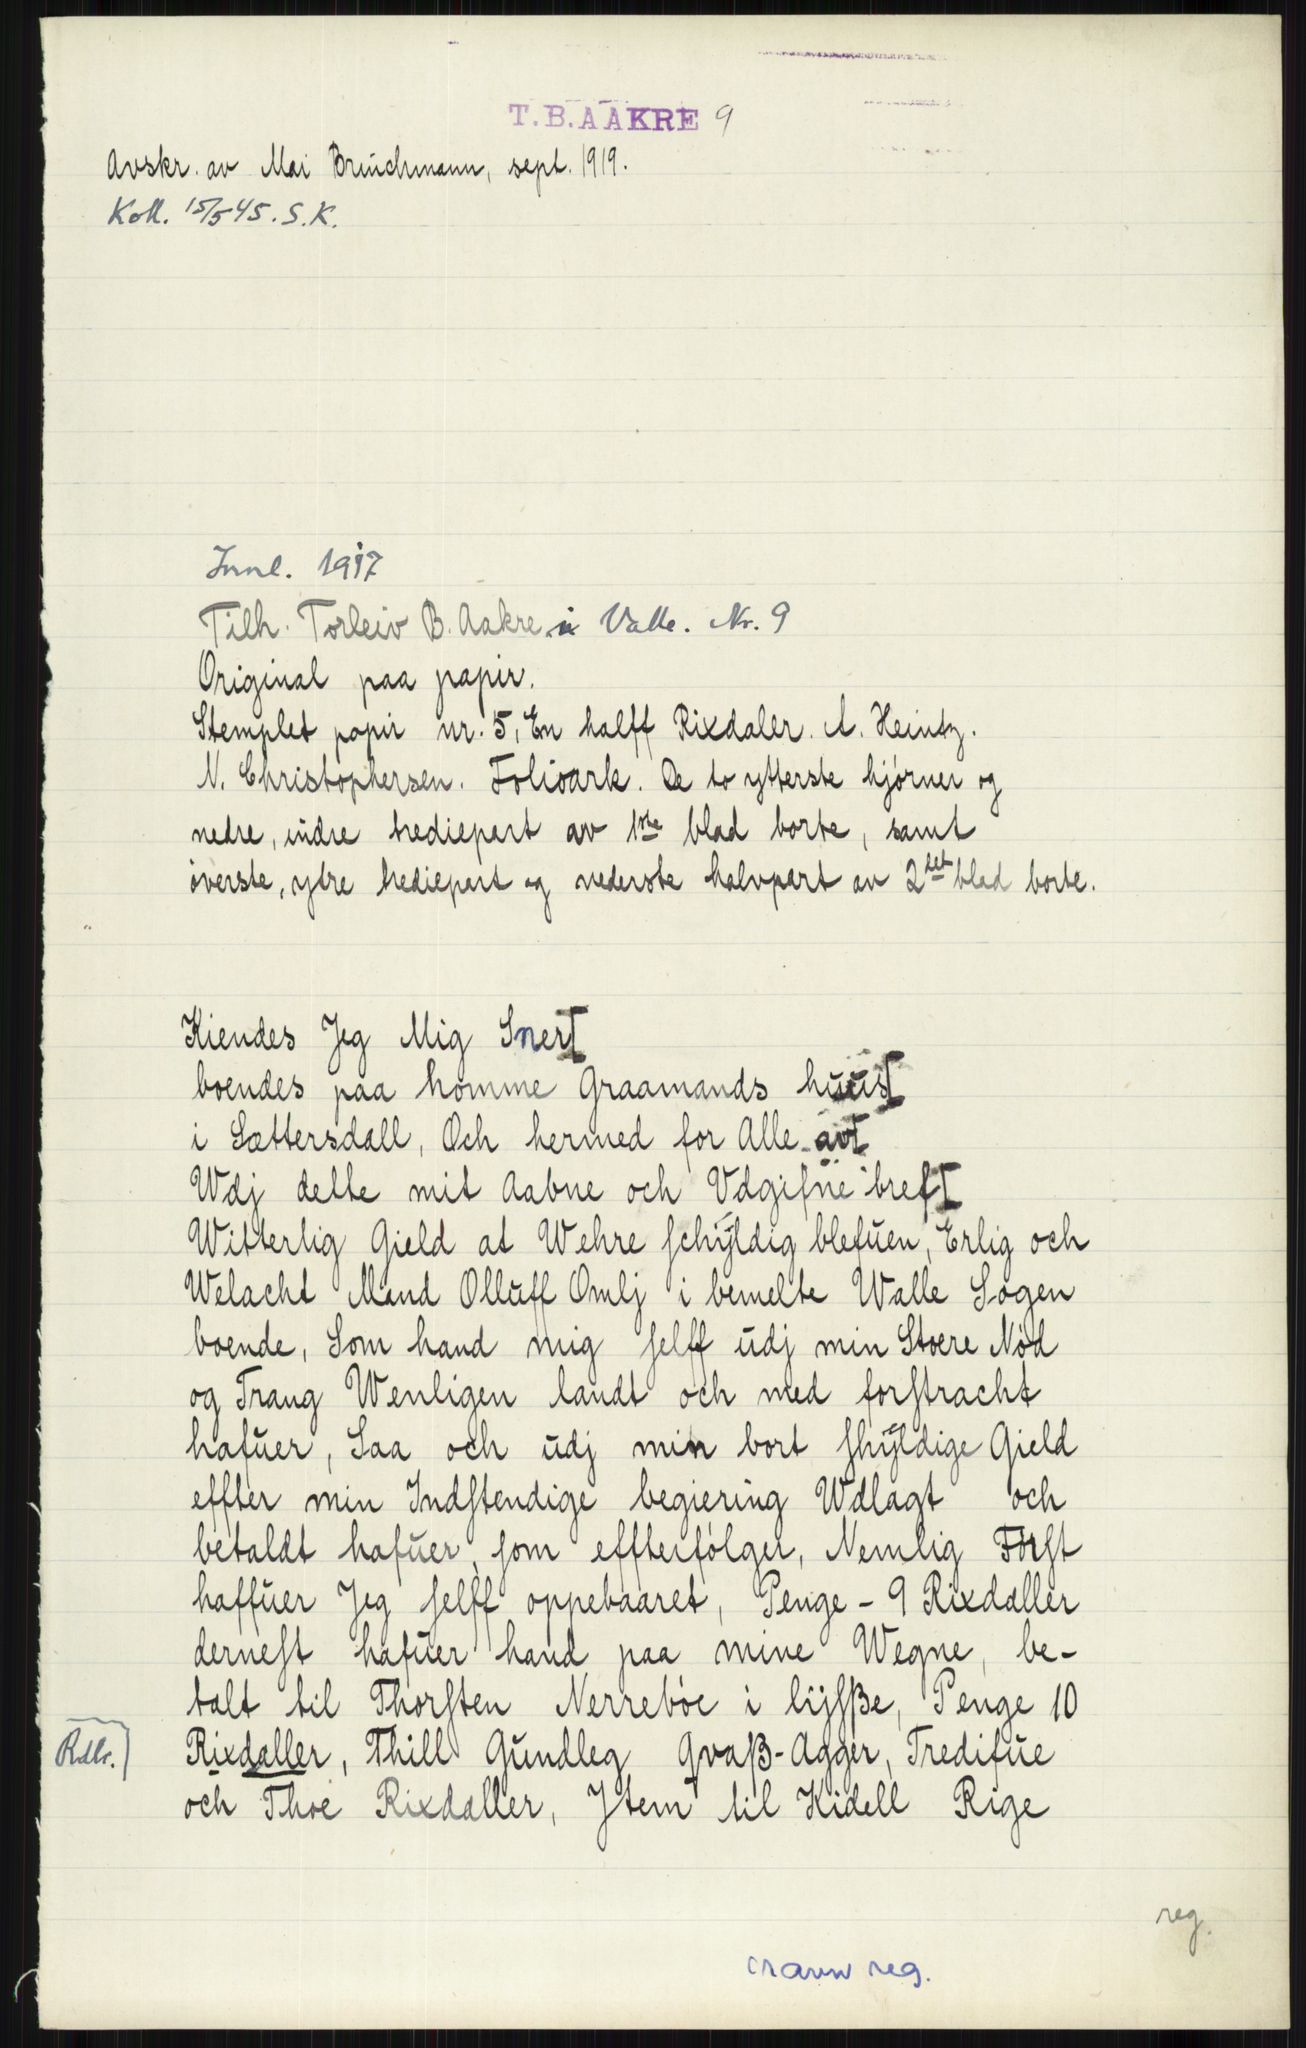 T.B.AAKRE 9
Avskr. av Mai Bruchmann, sept. 1919.
Koll. 15/5 45. S.K.
Innl. 1917
Tilh. Torleiv B. Aakre i Valle. Nr. 9
Original paa papir.
Stemplet papir nr. 5, En halff Rixdaler. A. Heintz.
N. Christophersen. Folioark. De to ytterste hjørner og
nedre, indre trediepart av 1ste blad borte, samt
øverste, ytre trediepart og nederste halvpart av 2det blad borte.
Kiendes Jeg Mig Sner[
boendes paa homme Graamands huus[
i Sættersdall, Och hermed for Alle av[
Wdj dette mit Aabne och Vdgifne bref[
Witterlig Gield at Wehre schÿldig blefuen, Erlig och
Welacht Mand Olluff Omlj i bemelte Walle Sogen
boende, Som hand mig selff udj min Stoere Nød
og Trang Wenligen landt och med forstracht
hafuer, Saa och udj min bort skÿldige Gield
effter min Indstendige begiering Wdlagt och
betaldt hafuer, som effterfølger, Nemlig Først
haffuer Jeg selff oppebaaret, Penge - 9 Rixdaller
dernest hafuer hand paa mine Wegne, be-
talt til Thorsten Nerrebøe i lÿsße, Penge 10
Rdlr.) Rixdaller, Thill Gundleg Qvaß-Agger, Tredifue
och Thoe Rixdaller, Jtem til Kidell Rige
reg.
reg.